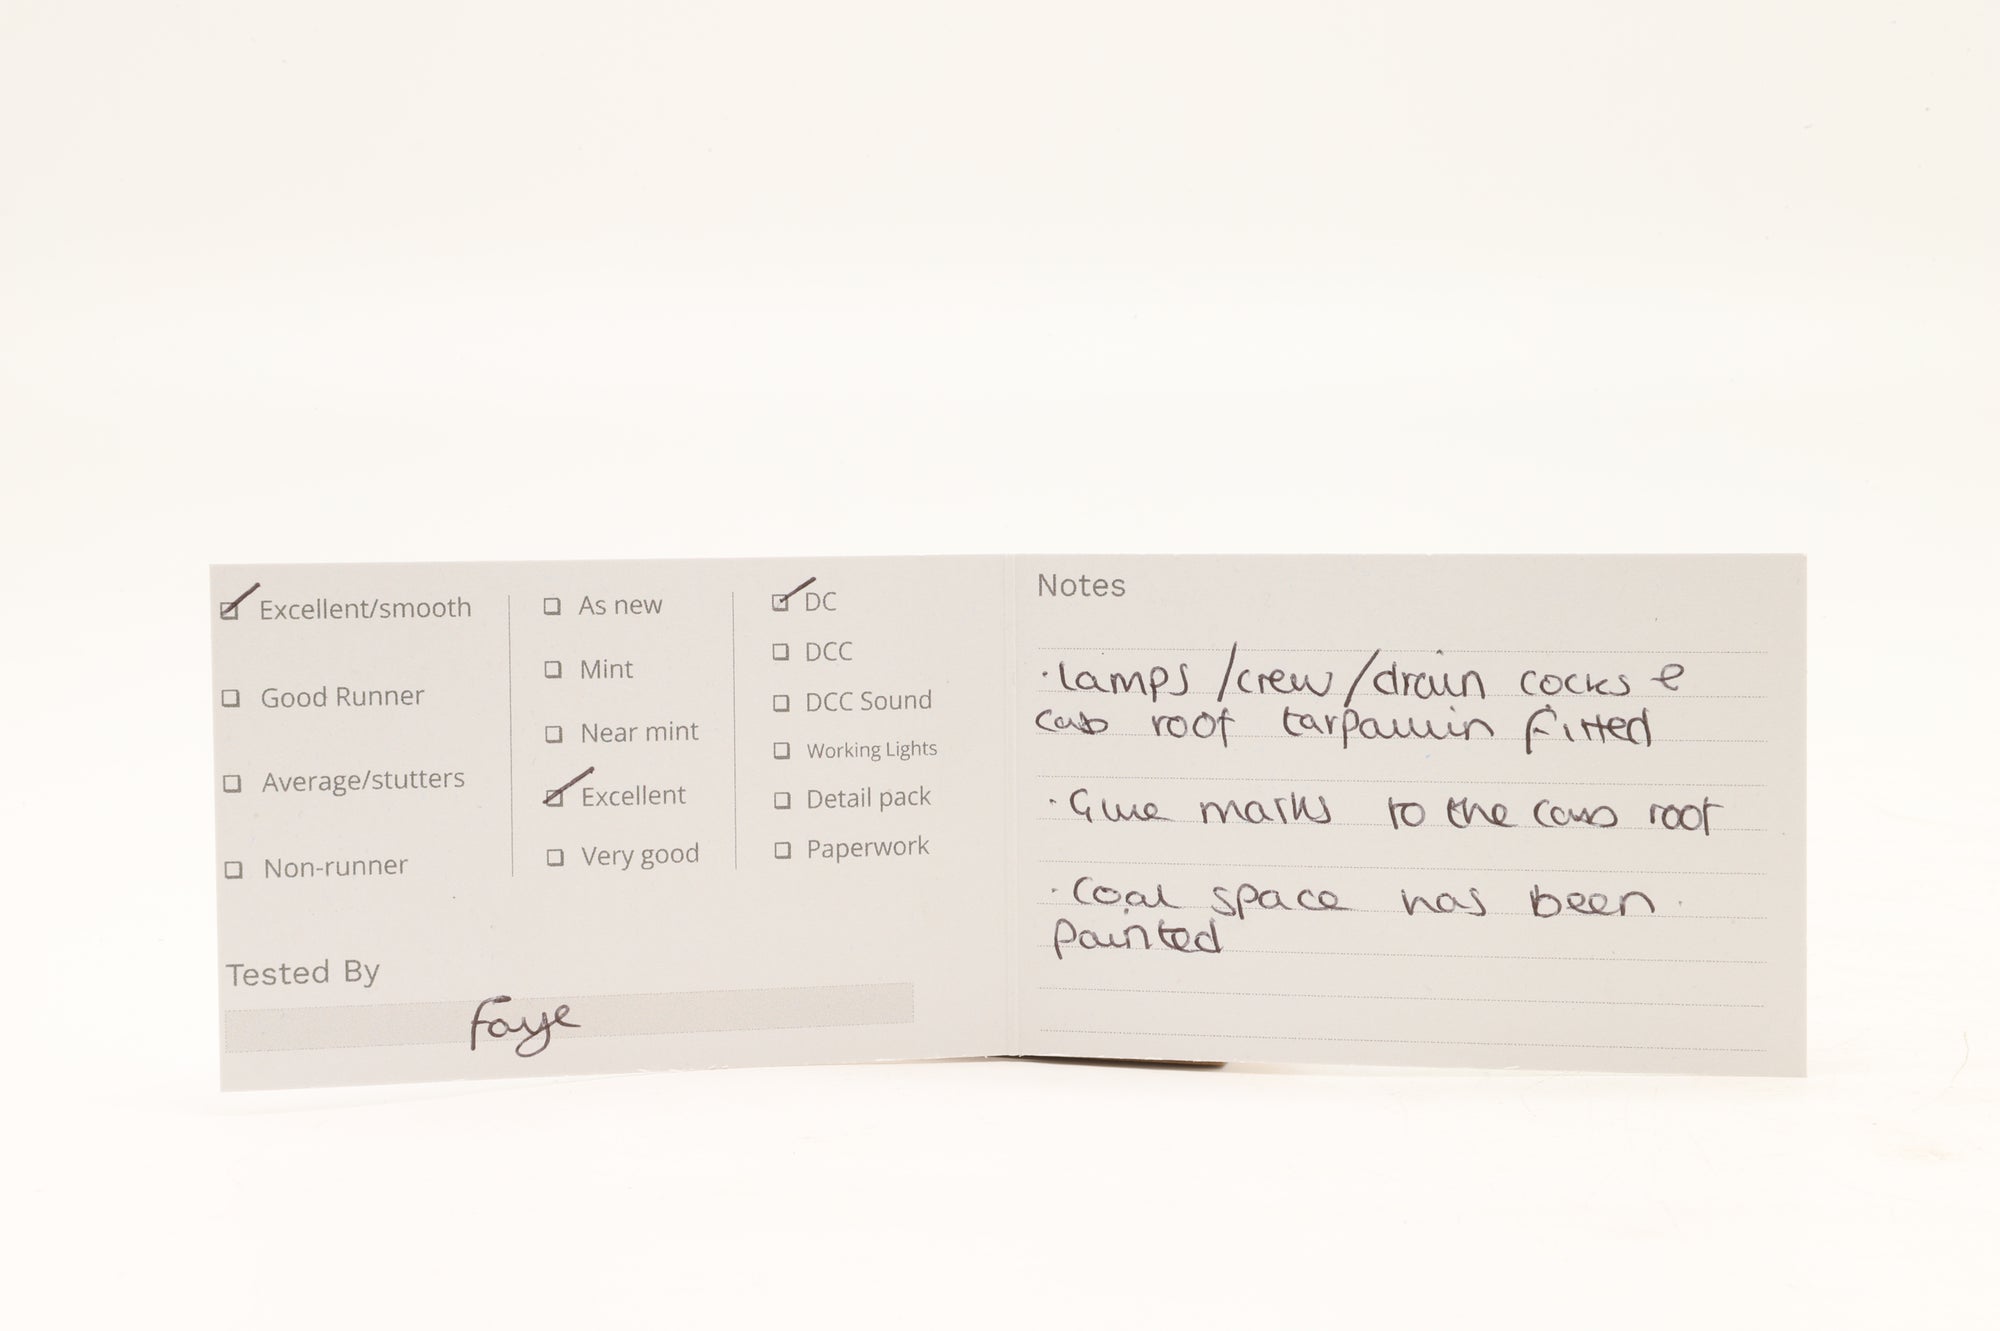 Excellent/smooth
Good Runner
Average/stutters
Non-runner
As new
Mint
Near mint
Excellent
Very good
DC
DCC
DCC Sound
Working Lights
Detail pack
Paperwork
Tested By
Faye
Notes
· Lamps /crew/drain cocks &
cab roof tarpaulin fitted
· Glue marks to the cab roof
· Coal space has been
painted